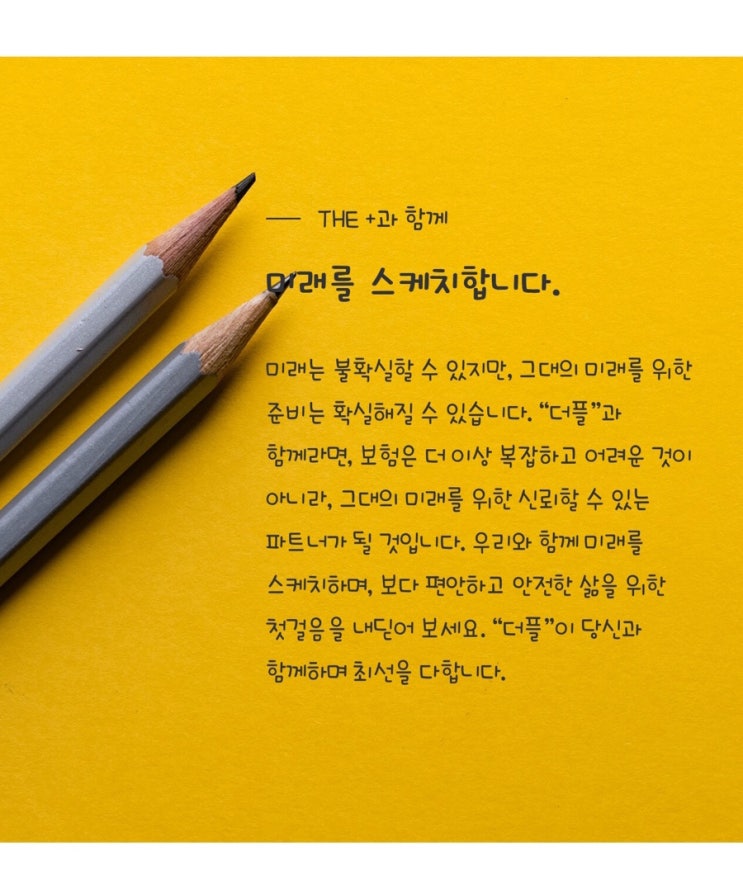 THE +과 함께
미래를 스케치합니다.
미래는 불확실할 수 있지만, 그대의 미래를 위한
준비는 확실해질 수 있습니다. “더플”과
함께라면, 보험은 더 이상 복잡하고 어려운 것이
아니라, 그대의 미래를 위한 신뢰할 수 있는
파트너가 될 것입니다. 우리와 함께 미래를
스케치하며, 보다 편안하고 안전한 삶을 위한
첫걸음을 내딛어 보세요. “더플”이 당신과
함께하며 최선을 다합니다.